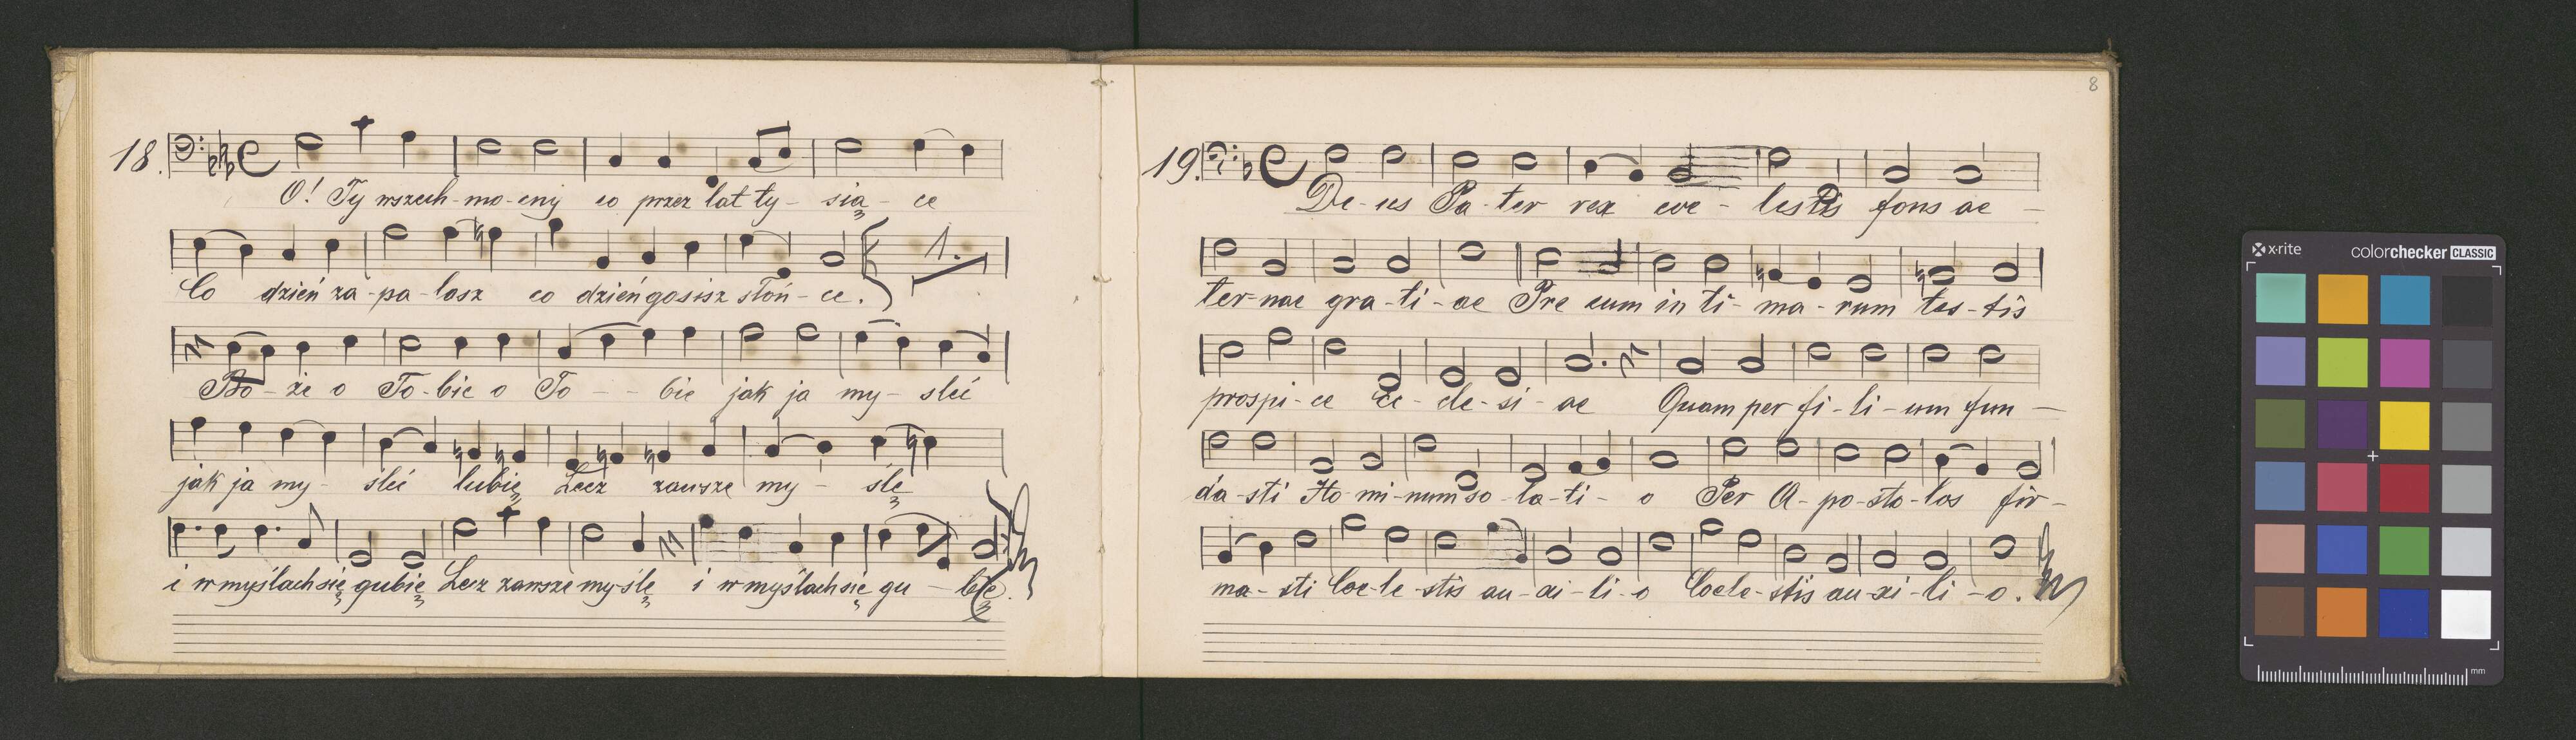 18. O! Ty wszech-mo-cny co przez lat ty-sią-ce
1.
Co dzień za-pa-lasz co dzień gasisz słoń-ce.
Bo-że o To-bie o To--bie jak ja my-sleć
jak ja my-sleć lubię Lecz zawsze my-slę
i w myślach się gubię Lecz zawsze my-ślę i w myślach się gu-bię.
8
19. De-us Pa-ter rex coe-lestis fons ae-
ter-nae gra-ti-ae Pre cum in ti-ma-rum tes-tis
prospi-ce Ec-cle-si-ae Quam per fi-li-um fun-
da-sti Ho-mi-num so-la-ti-o Per A-po-sto-los fir-
ma-sti Coe-le-stis au-xi-li-o Coele-stis au-xi-li-o.
x-rite colorchecker CLASSIC
mm